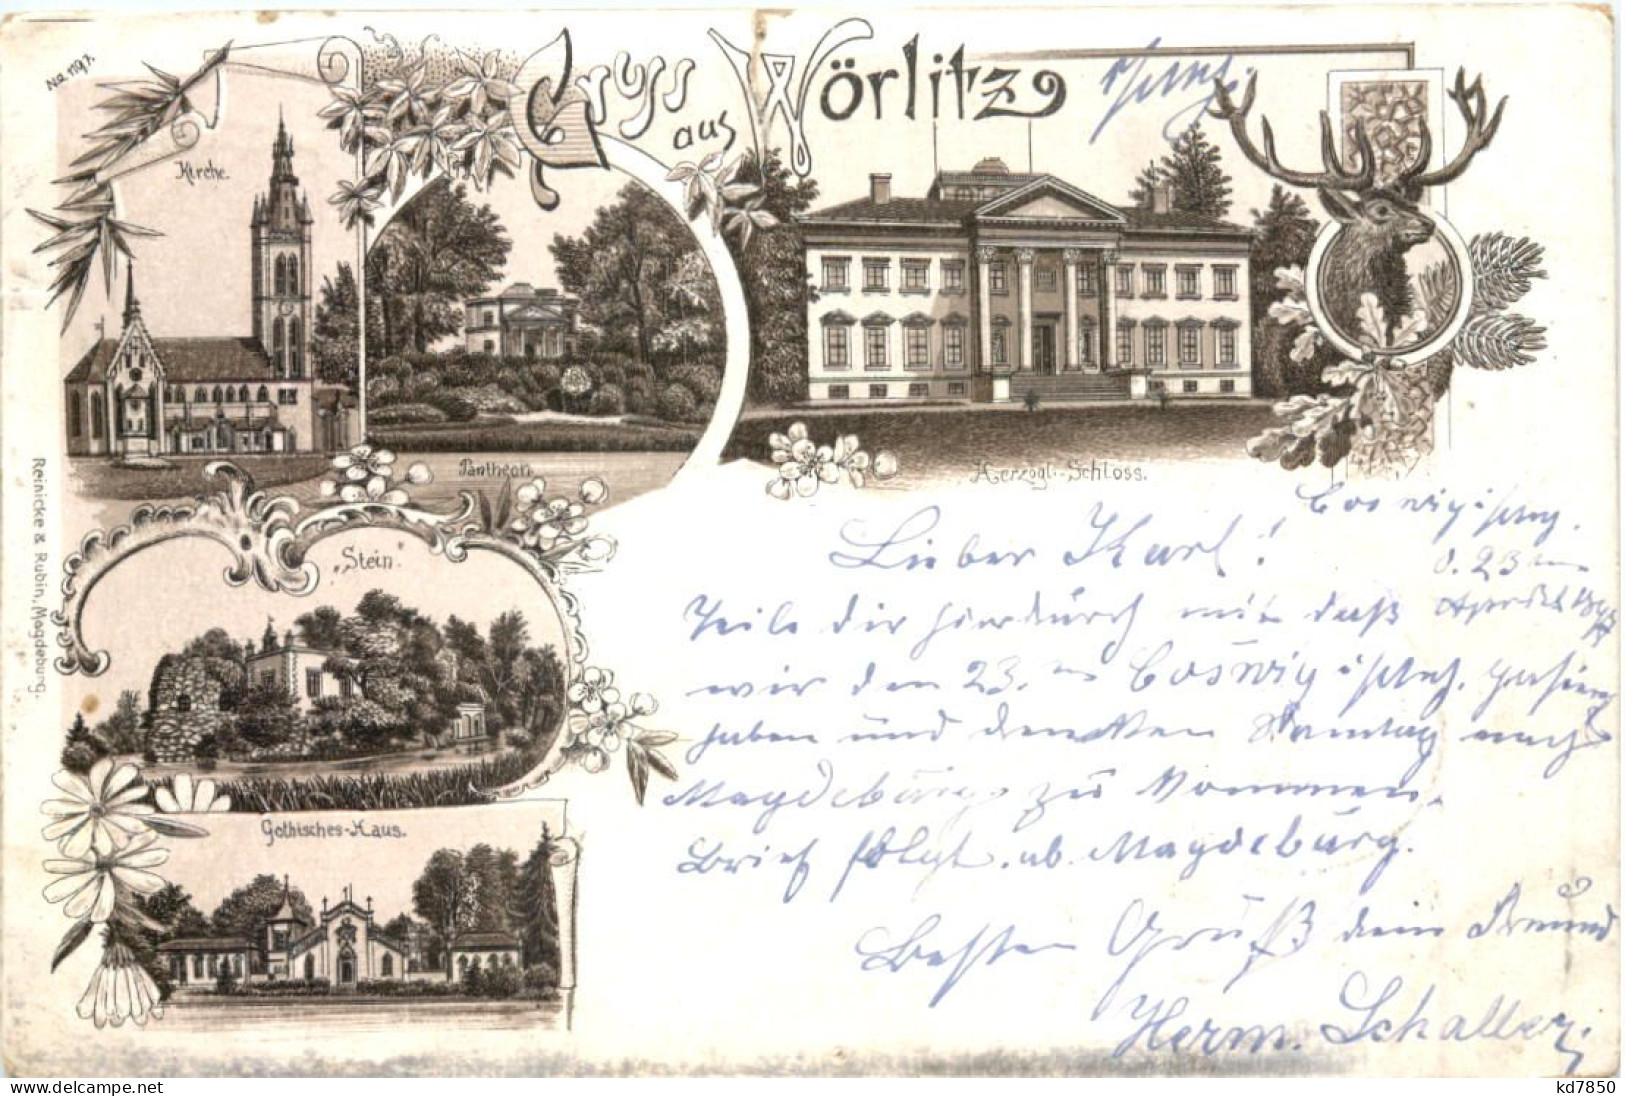 No. 1197.
Gruss
aus
Wörlitz
Kirche.
Pantheon.
Herzogl.-Schloss.
"Stein."
Gothisches-Haus.
Reinicke & Rubin, Magdeburg.
Coswig
d. 23ten
Lieber Karl!
Teile dir hierdurch mit daß
wir den 23. in Coswig
haben und denken Sonntag nach
Magdeburg zu kommen.
Brief folgt ab Magdeburg.
Besten Gruß dein Freund
Herm. Schaller.
kd7850